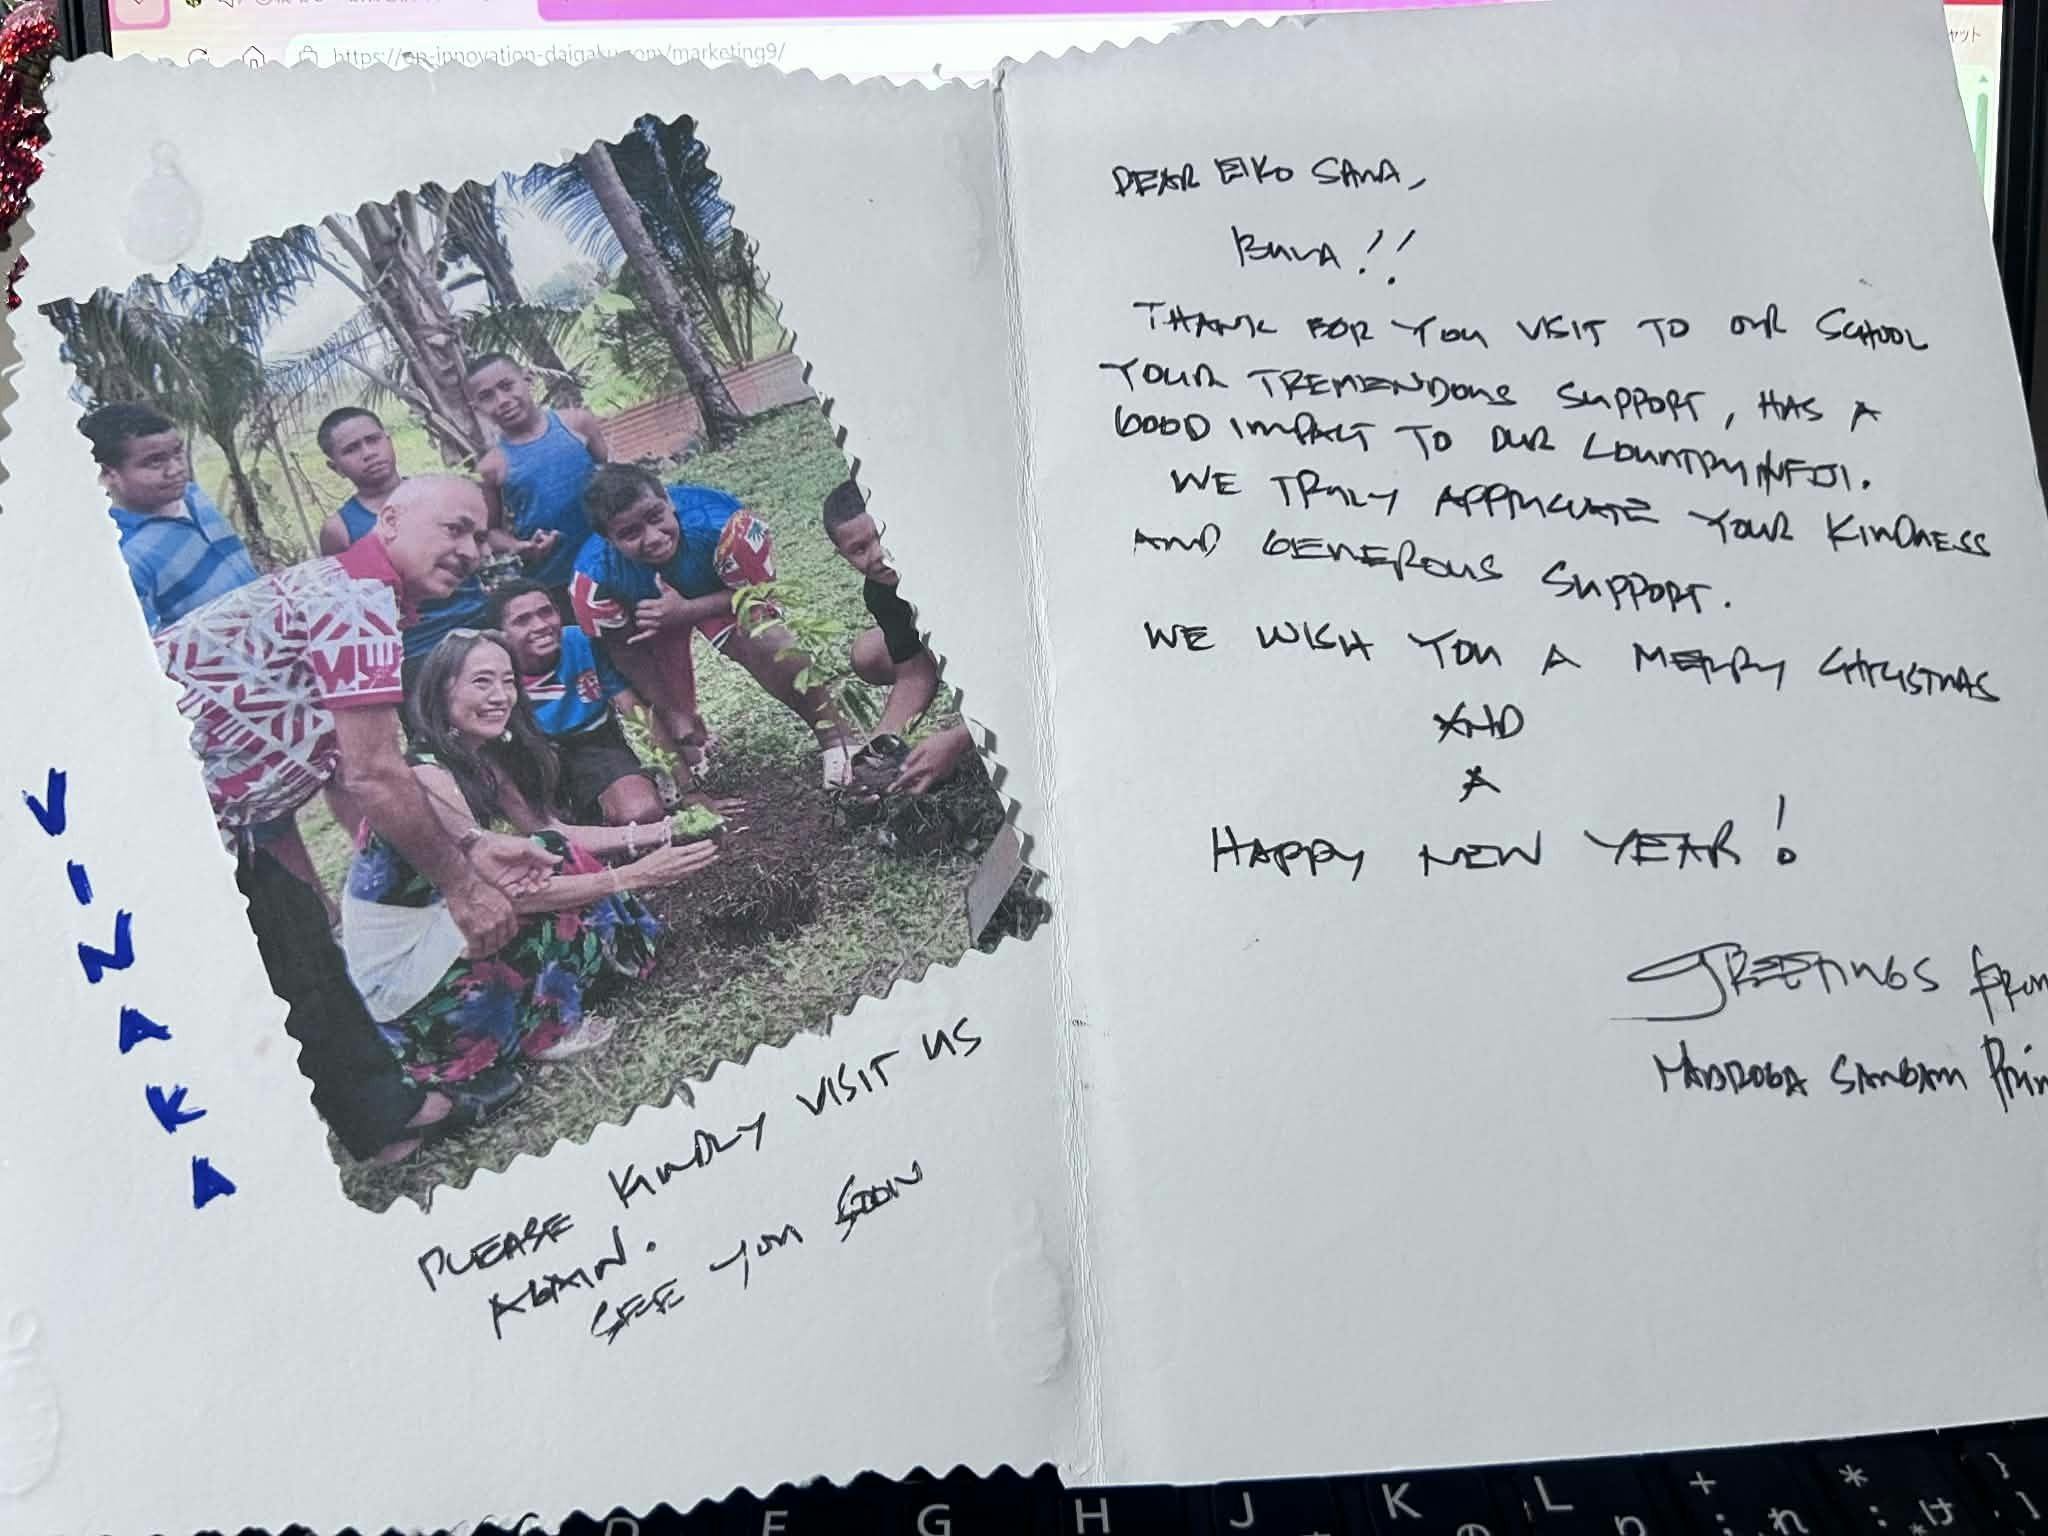 https://cp-innovation-daigaku.com/marketing9/
VINAKA
PLEASE KINDLY VISIT US
AGAIN.
SEE YOU SOON
DEAR EIKO SAMA,
BULA!!
THANK FOR YOU VISIT TO OUR SCHOOL
YOUR TREMENDOUS SUPPORT, HAS A
GOOD IMPACT TO OUR COUNTRY IN FIJI.
WE TRULY APPRICIATE YOUR KINDNESS
AND GENEROUS SUPPORT.
WE WISH YOU A MERRY CHRISTMAS
AND
A
HAPPY NEW YEAR!
GREETINGS FROM
SANGAM
G H J K L + *
れ け